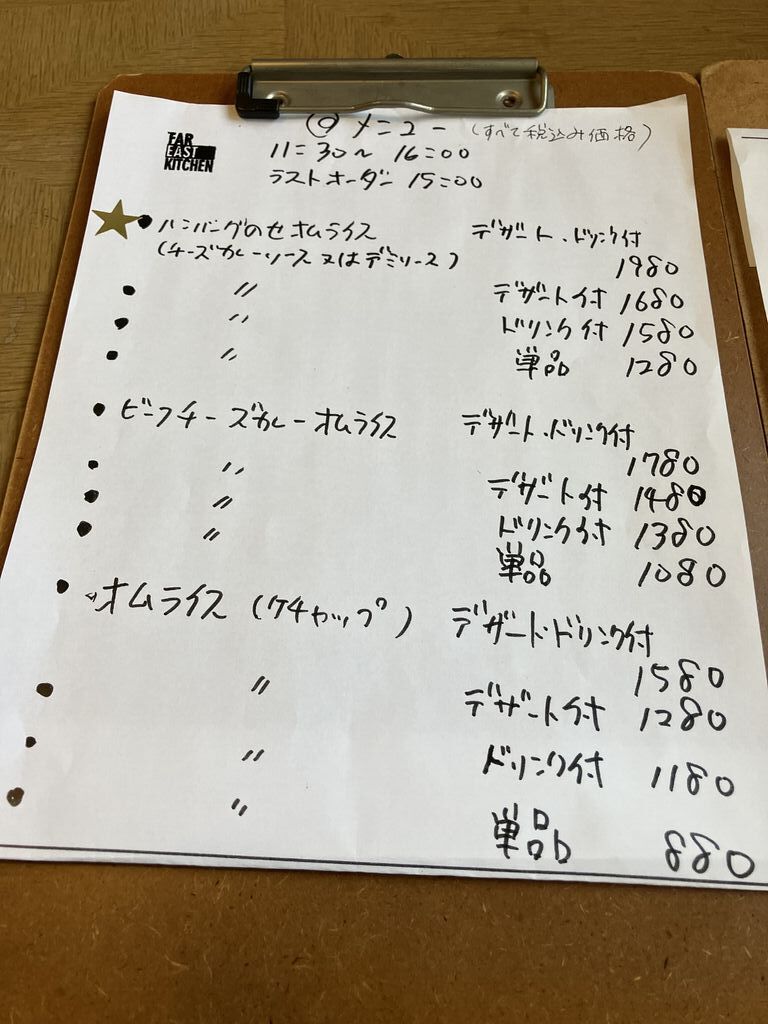 FAR
EAST
KITCHEN
◎ メニュー (すべて税込み価格)
11:30〜 16:00
ラストオーダー 15:00
★ ● ハンバーグのせオムライス デザート・ドリンク付
(チーズカレーソース又はデミソース) 1980
● 〃 デザート付 1680
● 〃 ドリンク付 1580
● 〃 単品 1280
● ビーフチーズカレーオムライス デザート・ドリンク付
1780
● 〃 デザート付 1480
● 〃 ドリンク付 1380
● 〃 単品 1080
● オムライス (ケチャップ) デザート・ドリンク付
1580
● 〃 デザート付 1280
● 〃 ドリンク付 1180
● 〃 単品 880